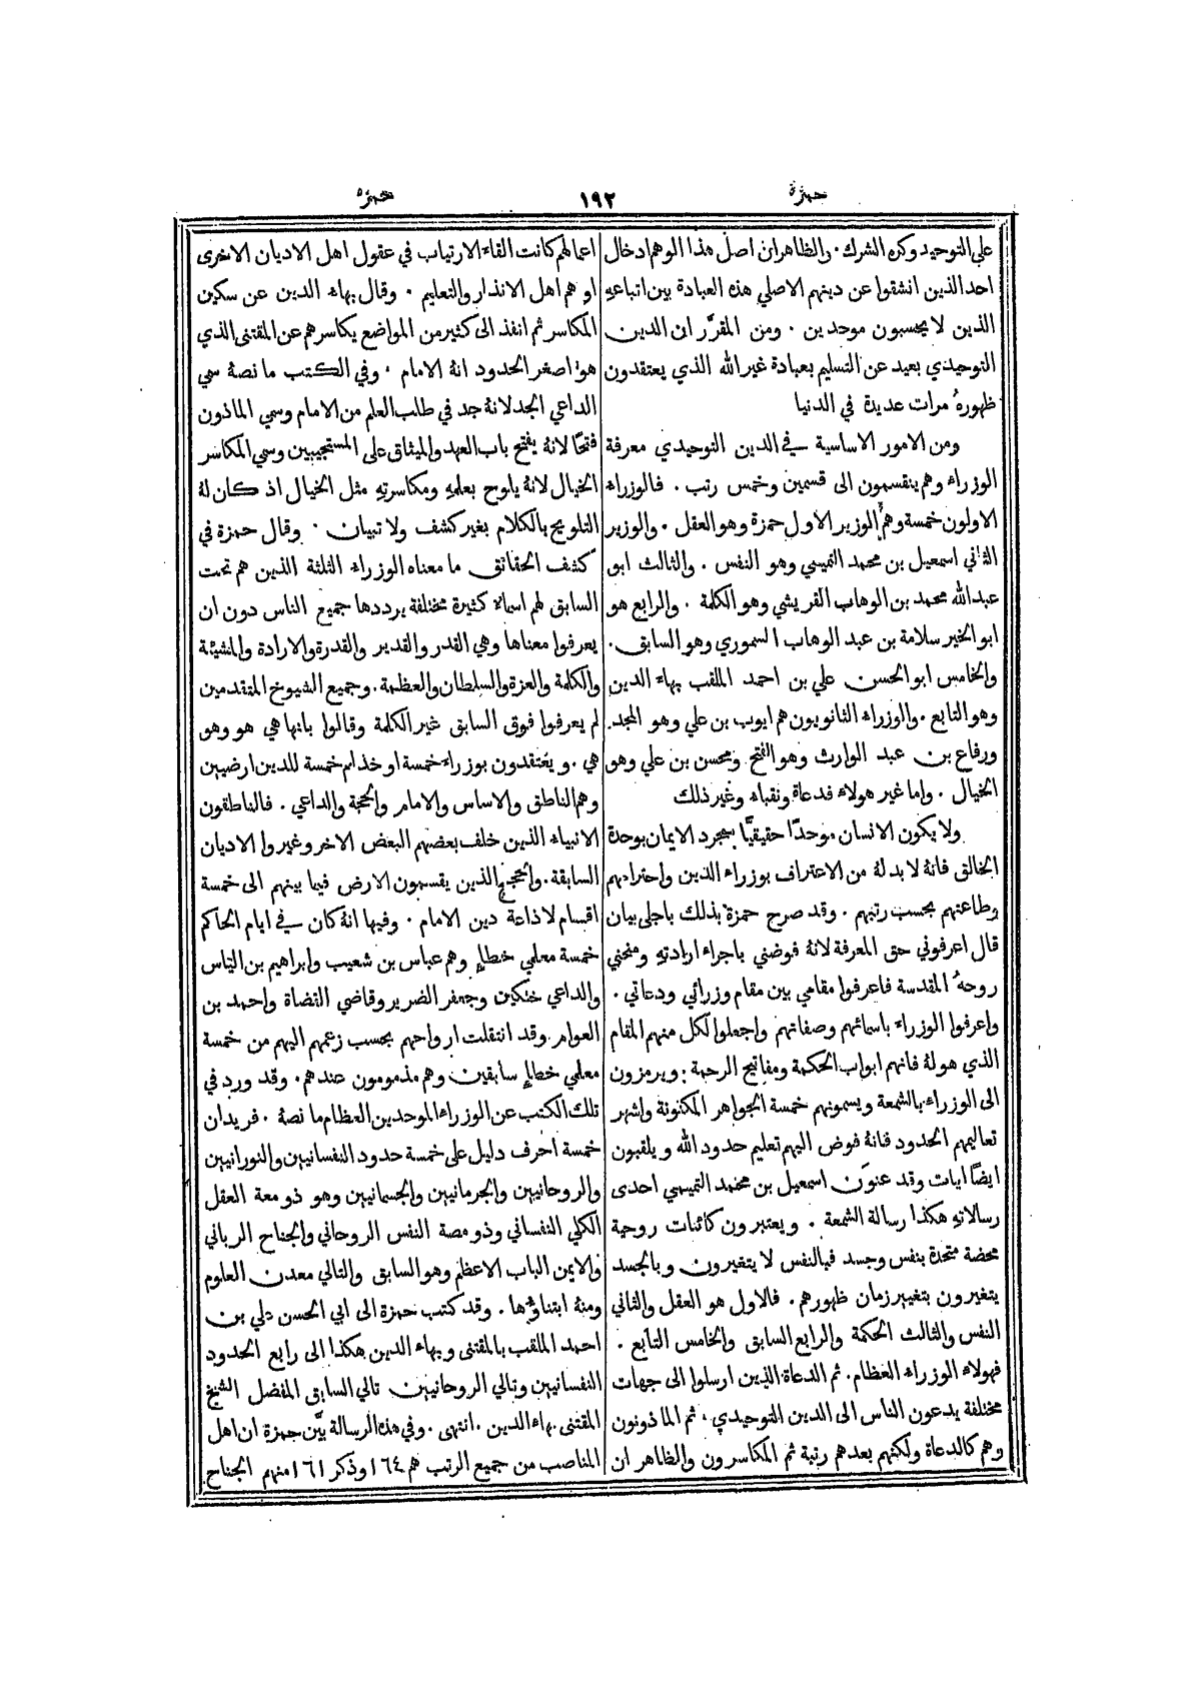 حمزة
١٩٢
حمزه
على التوحيد وكره الشرك . والظاهر ان اصل هذا الوهم ادخال
احد الذين انشقوا عن دينهم الاصلي هذه العبادة بين اتباعهِ
الذين لا يحسبون موحدين . ومن المقرَّر ان الدين
التوحيدي بعيد عن التسليم بعبادة غير الله الذي يعتقدون
ظهورهُ مرات عديدة في الدنيا
ومن الامور الاساسية في الدين التوحيدي معرفة
الوزراء وهم ينقسمون الى قسمين وخمس رتب . فالوزراء
الاولون خمسة وهم الوزير الاول حمزة وهو العقل . والوزير
الثاني اسمعيل بن محمد التميمي وهو النفس . والثالث ابو
عبد الله محمد بن الوهاب القريشي وهو الكلمة . والرابع هو
ابو الخير سلامة بن عبد الوهاب السموري وهو السابق .
والخامس ابو الحسن علي بن احمد الملقب بهاء الدين
وهو التابع . والوزراء الثانويون هم ايوب بن علي وهو المجد .
ورفاع بن عبد الوارث وهو الفتح ومحسن بن علي وهو
الخيال . واما غير هولاء فدعاة ونقباء وغير ذلك
ولا يكون الانسان موحدًا حقيقيًّا بمجرد الايمان بوحدة
الخالق فانهُ لا بد لهُ من الاعتراف بوزراء الدين واحترامهم
وطاعتهم بحسب رتبهم . وقد صرح حمزة بذلك باجلى بيان
قال اعرفوني حق المعرفة لانهُ فوضني باجراء ارادتهِ ومنحني
روحهُ المقدسة فاعرفوا مقامي بين مقام وزرائي ودعاتي .
واعرفوا الوزراء باسمائهم وصفاتهم واجعلوا لكل منهم المقام
الذي هولهُ فانهم ابواب الحكمة ومفاتيح الرحمة . ويرمزون
الى الوزراء بالشمعة ويسمونهم خمسة الجواهر المكنونة واشهر
تعاليمهم الحدود فانهُ فوض اليهم تعليم حدود الله ويلقبون
ايضًا ايات وقد عنوَن اسمعيل بن محمد التميمي احدى
رسالاتهِ هكذا رسالة الشمعة . ويعتبرون كائنات روحية
محضة متحدة بنفس وجسد فبالنفس لا يتغيرون وبالجسد
يتغيرون بتغيير زمان ظهورهم . فالاول هو العقل والثاني
النفس والثالث الحكمة والرابع السابق والخامس التابع .
فهولاء الوزراء العظام . ثم الدعاة الذين ارسلوا الى جهات
مختلفة يدعون الناس الى الدين التوحيدي . ثم الماذونون
وهم كالدعاة ولكنهم بعدهم رتبة ثم المكاسرون والظاهر ان
اعمالهم كانت القاء الارتياب في عقول اهل الاديان الاخرى
او هم اهل الانذار والتعليم . وقال بهاء الدين عن سكين
المكاسر ثم انفذ الى كثير من المواضع يكاسرهم عن المقتنى الذي
هو اصغر الحدود انهُ الامام . وفي الكتب ما نصهُ سمي
الداعي الجد لانهُ جد في طلب العلم من الامام وسمي الماذون
فتحًا لانهُ يفتح باب العهد والميثاق على المستجيبين وسمي المكاسر
الخيال لانهُ يلوح بعلمهِ ومكاسرتهِ مثل الخيال اذ كان لهُ
التلويح بالكلام بغير كشف ولا تبيان . وقال حمزة في
كشف الحقائق ما معناه الوزراء الثلثة الذين هم تحت
السابق لهم اسماء كثيرة مختلفة يرددها جميع الناس دون ان
يعرفوا معناها وهي القدر والقدير والقدرة والارادة والمشيئة
والكلمة والعزة والسلطان والعظمة . وجميع الشيوخ المتقدمين
لم يعرفوا فوق السابق غير الكلمة وقالوا بانها هي هو وهو
هي . ويعتقدون بوزراء خمسة او خدام خمسة للدين ارضيين
وهم الناطق والاساس والامام والحجة والداعي . فالناطقون
الانبياء الذين خلف بعضهم البعض الاخر وغيروا الاديان
السابقة . والحجج الذين يقسمون الارض فيما بينهم الى خمسة
اقسام لاذاعة دين الامام . وفيها انهُ كان في ايام الحاكم
خمسة معلمي خطإٍ وهم عباس بن شعيب وابراهيم بن الياس
والداعي ختكين وجعفر الضرير وقاضي القضاة واحمد بن
العوام . وقد انتقلت ارواحهم بحسب زعمهم اليهم من خمسة
معلمي خطإٍ سابقين وهم مذمومون عندهم . وقد ورد في
تلك الكتب عن الوزراء الموحدين العظام ما نصهُ . فريدان
خمسة احرف دليل على خمسة حدود النفسانيين والنورانيين
والروحانيين والجرمانيين والجسمانيين وهو ذو معة العقل
الكلي النفساني وذو مصة النفس الروحاني والجناح الرباني
والايمن الباب الاعظم وهو السابق والتالي معدن العلوم
ومنهُ ابتناؤها . وقد كتب حمزة الى ابي الحسن علي بن
احمد الملقب بالمقتنى وبهاء الدين هكذا الى رابع الحدود
النفسانيين وتالي الروحانيين تالي السابق المفضل الشيخ
المقتنى بهاء الدين . انتهى . وفي هذه الرسالة بيَّن حمزة ان اهل
المناصب من جميع الرتب هم ١٦٤ وذكر ١٦١ منهم الجناح